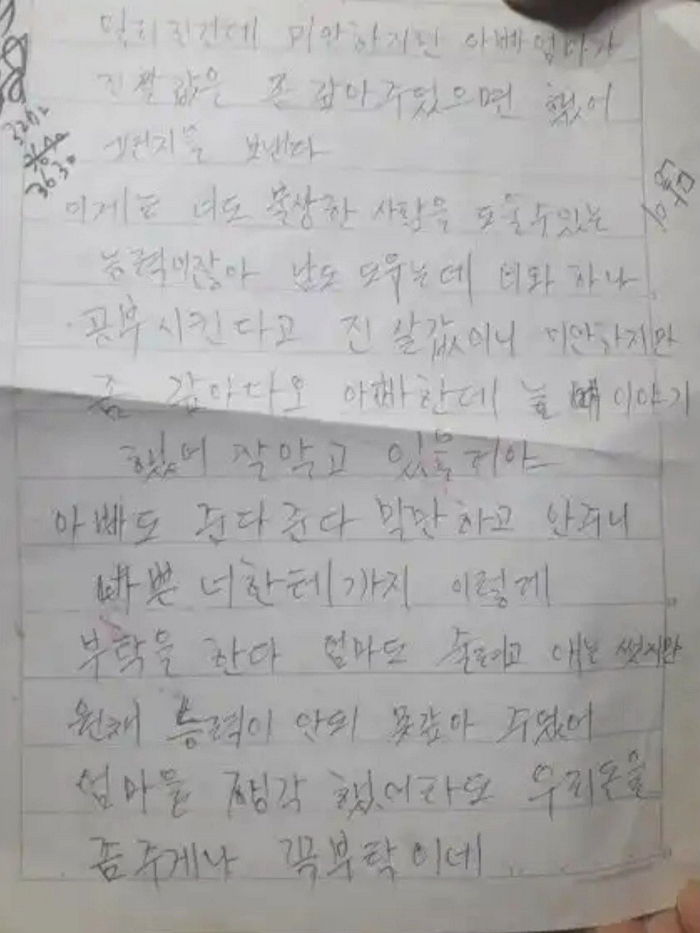 미안하지만 아빠엄마가
진 쌀값을 좀 갚아주었으면 했어
편지를 보낸다
이제는 너도 불상한 사람을 도울수있는
능력이잖아 남도 도우는데 너와 하나
공부시킨다고 진 쌀값이니 미안하지만
좀 갚아다오 아빠한데 늘 이야기
했어 잘알고 있을거야
아빠도 준다준다 말만하고 안주니
바쁜 너한테까지 이렇게
부탁을 한다 엄마도 줄려고 애는 썼지만
원채 능력이 안되 못갚아 주었어
엄마을 생각 했어라도 우리돈을
좀주게나 꼭부탁이네
3630